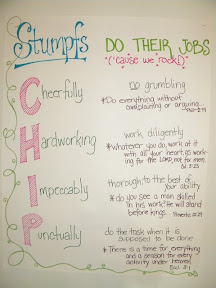 Stumpfs DO THEIR JOBS
*('cause we rock!)*
Cheerfully
no grumbling
*Do everything without
complaining or arguing...
Phil 2:14
Hardworking
work diligently
*whatever you do, work at it
with all your heart, as work-
ing for the LORD, not for men.
Col. 3:23
Impeccably
thorough, to the best of
your ability
*do you see a man skilled
in his work? He will stand
before kings.. Proverbs 22:29
Punctually
do the task when it is
supposed to be done
*There is a time for everything
and a season for every
activity under heaven.
Eccl. 3:1